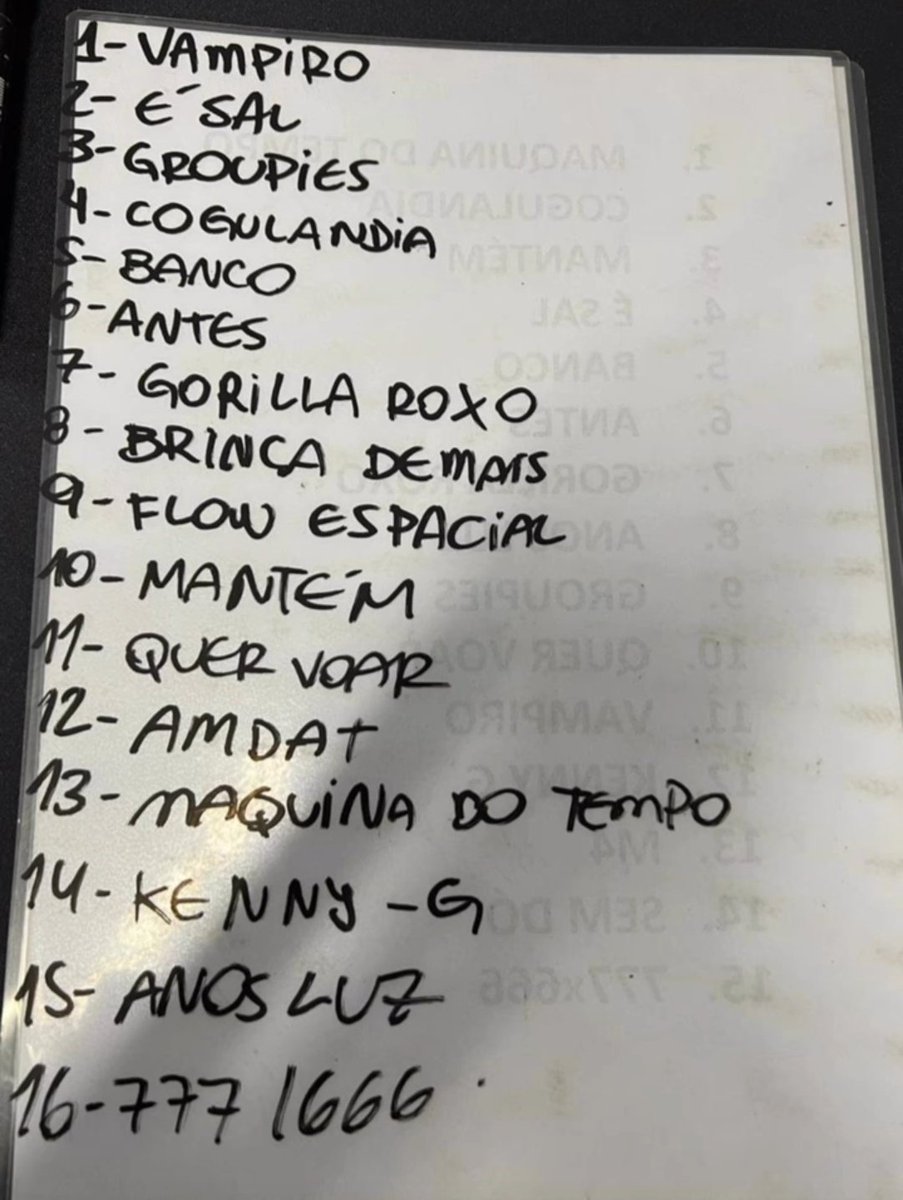 1- VAMPIRO
2- E´SAL
3- GROUPIES
4- COGULANDIA
5- BANCO
6- ANTES
7- GORILLA ROXO
8- BRINCA DEMAIS
9- FLOW ESPACIAL
10- MANTÉM
11- QUER VOAR
12- AMDAT
13- MAQUINA DO TEMPO
14- KENNY -G
15- ANOS LUZ
16- 777 / 666
1. MAQUINA DO TEMPO
2. COGULANDIA
3. MANTÉM
4. É SAL
5. BANCO
6. ANTES
7.
8.
9. GROUPIES
10. QUER VOAR
11. VAMPIRO
12. KENNY G
13. M4
14. SEM DÓ
15. 777x666